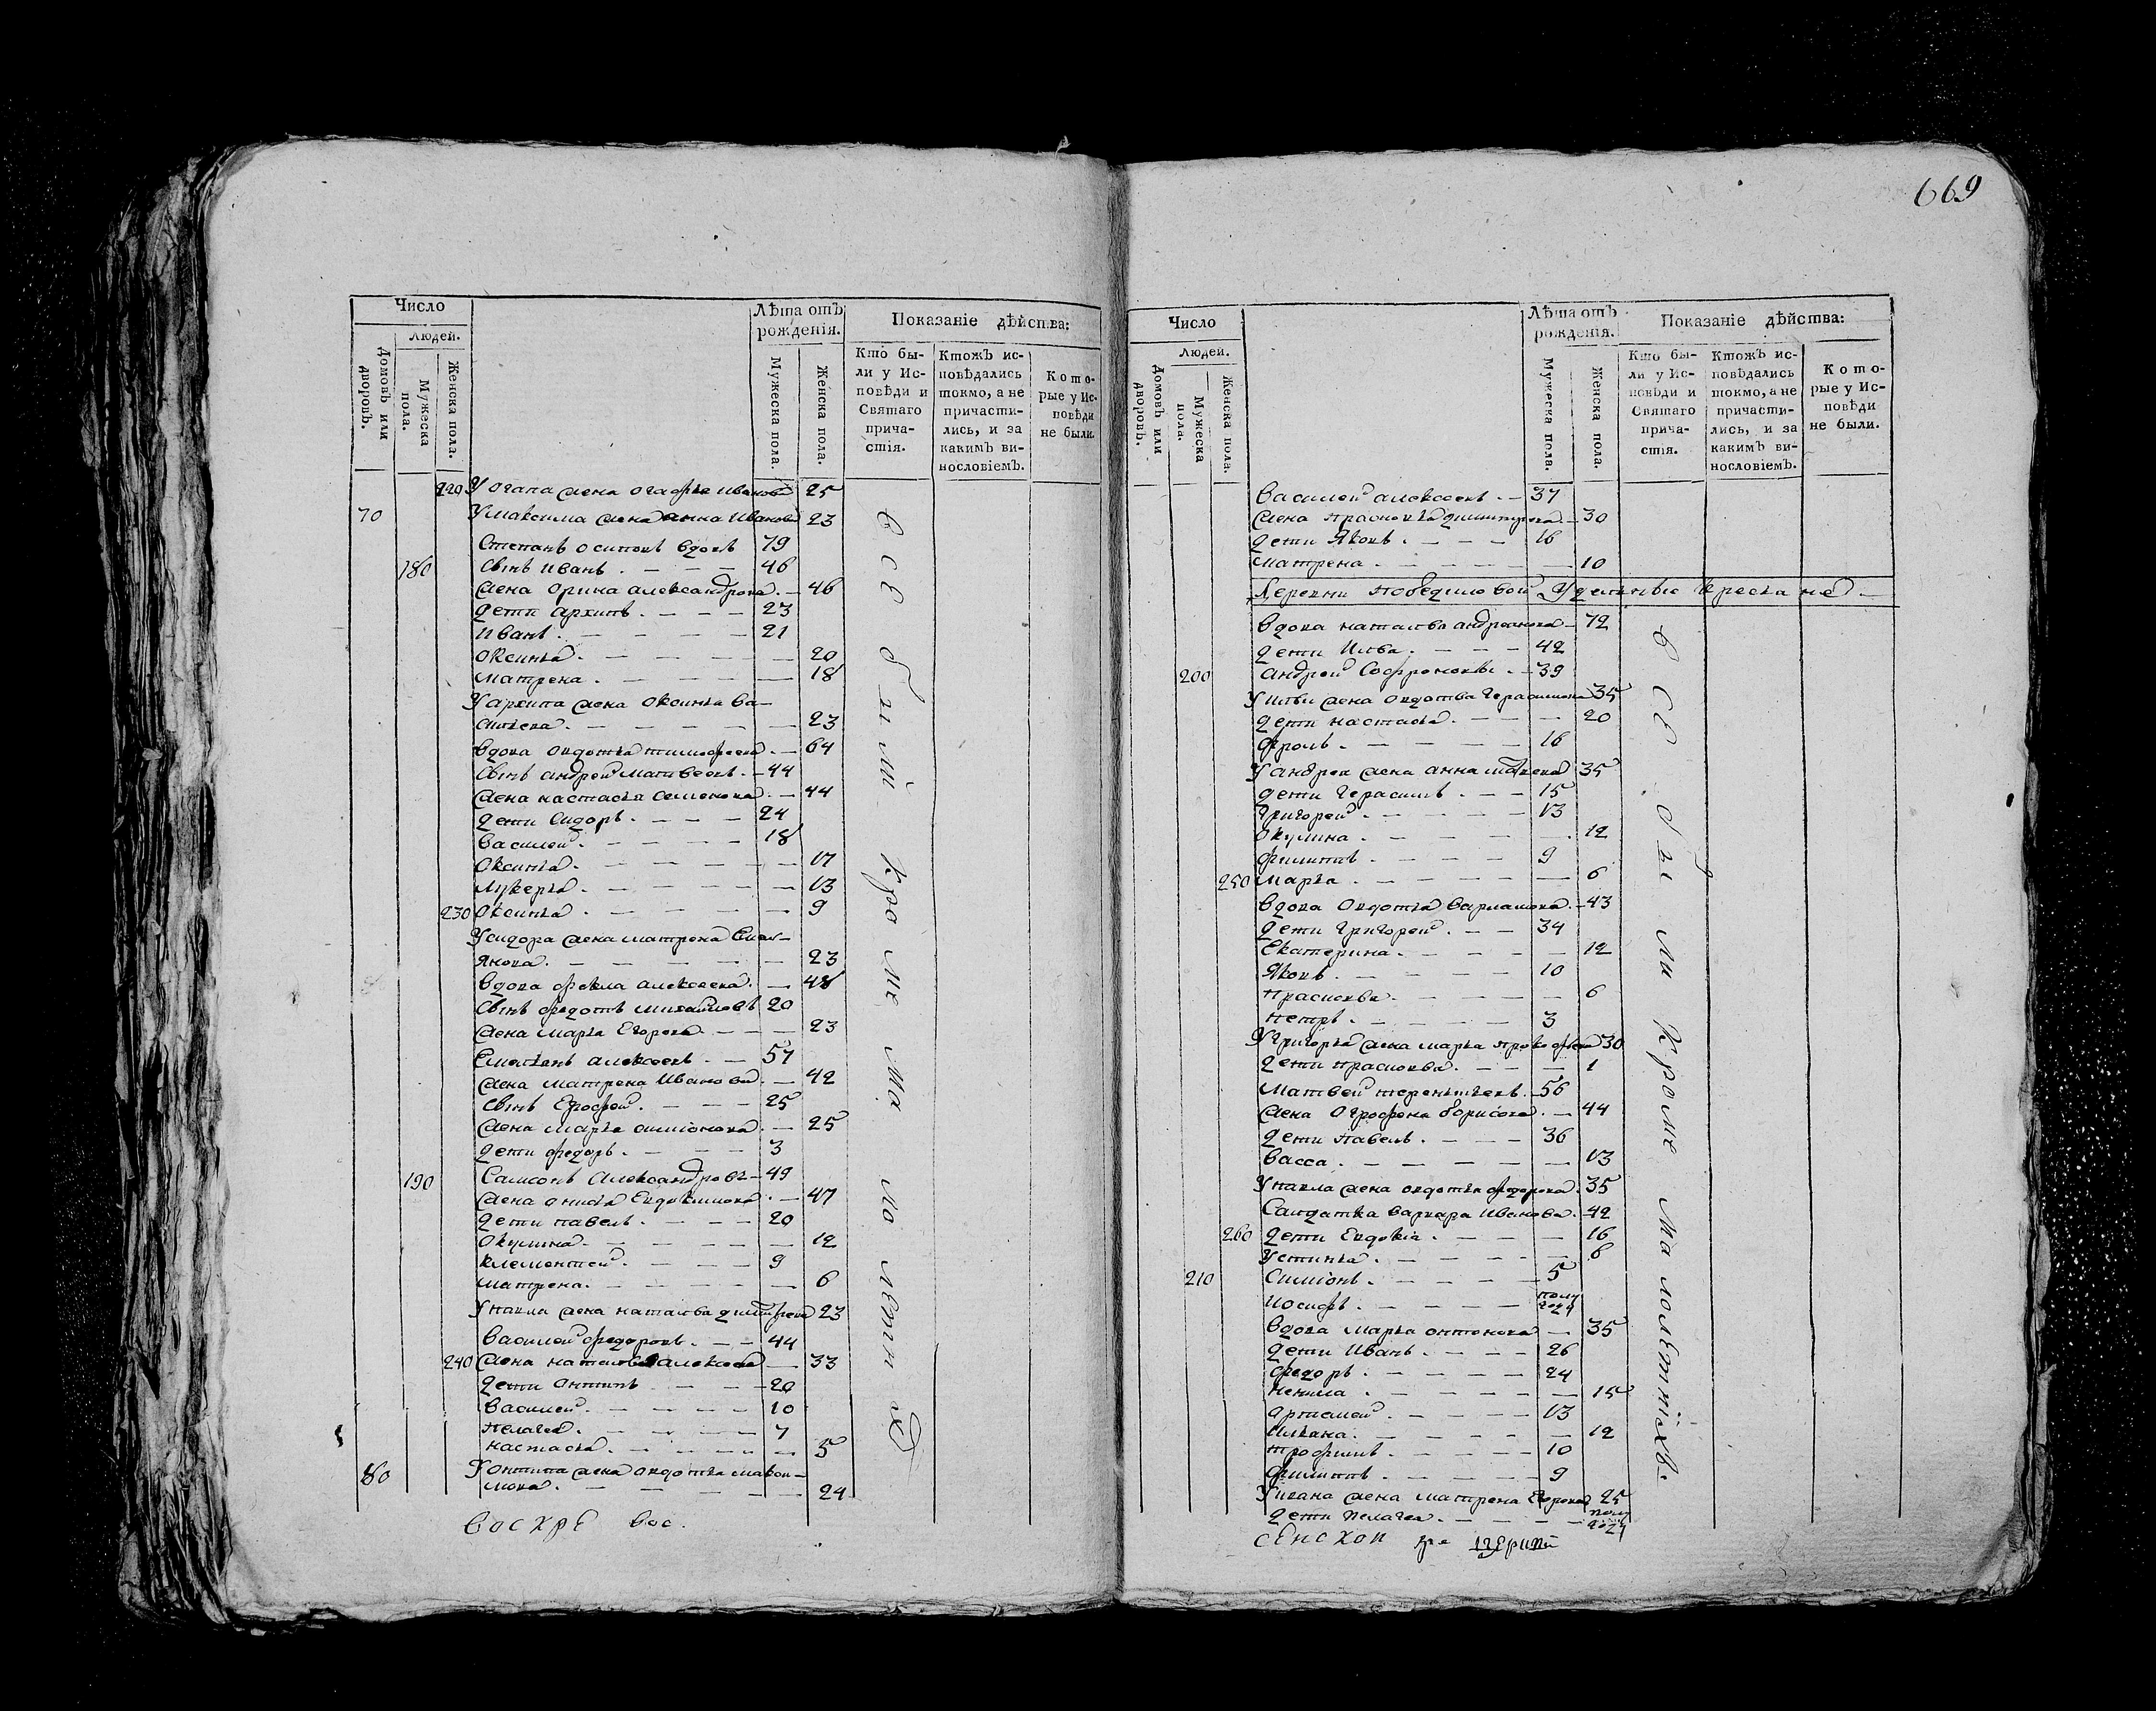 669
Число
Людей.
Домовъ или дворовъ.
Мужеска пола.
Женска пола.
Лѣта отъ рожденія.
Мужеска пола.
Женска пола.
Показаніе дѣйства:
Кто бы-
ли у Ис-
повѣди и
Святаго
прича-
стія.
Ктожъ ис-
повѣдались
токмо, а не
причасти-
лись, и за
какимъ ви-
нословіемъ.
Кото-
рые у Ис-
повѣди
не были.
220 У огапа жена огафья Иванова 25
70 У максима жена анна Иванова 23
Степанъ осиповъ вдовъ 79
180 сынъ иванъ 46
жена орина александрова 46
дети архипъ 23
иванъ 21
оксинья 20
матрена 18
У архипа жена оксинья Ва-
сильева 23
вдова овдотья тимофеева 64
сынъ андрей матвеевъ 44
жена настасья семенова 44
дети Сидоръ 24
василей 18
оксинья 17
лукерья 13
230 оксинья 9
У сидора жена матрена Емель-
янова 23
вдова фекла алексеева 48
сынъ федотъ михайловъ 20
жена марья Егорова 23
Емельянъ алексеевъ 57
жена матрена Иванова 42
сынъ Ерофей 25
жена марья симіонова 25
дети федоръ 3
190 Самсонъ Александровъ 49
жена онисья Евдокимова 47
дети павелъ 20
окулина 12
клементей 9
матрена 6
У павла жена наталья дмитрева 23
василей федоровъ 44
240 жена наталья алексеева 33
дети онтипъ 20
василей 10
пелагея 7
настасья 5
80 У онтипа жена овдотья макси-
мова 24
все были кроме малолетнихъ
воскре вос.
Число
Людей.
Домовъ или дворовъ.
Мужеска пола.
Женска пола.
Лѣта отъ рожденія.
Мужеска пола.
Женска пола.
Показаніе дѣйства:
Кто бы-
ли у Ис-
повѣди и
Святаго
прича-
стія.
Ктожъ ис-
повѣдались
токмо, а не
причасти-
лись, и за
какимъ ви-
нословіемъ.
Кото-
рые у Ис-
повѣди
не были.
василей алексеевъ 37
жена прасковья дмитрева 30
дети Яковъ 16
матрена 10
Деревни победиловой Удельные крестьяне
вдова наталья андреянова 72
дети Илья 42
200 андрей Софроновы 39
У ильи жена овдотья герасимова 35
дети настасья 20
фролъ 16
У андрея жена анна 35
дети герасимъ 15
григорей 13
окулина 12
филиппъ 9
250 марья 6
вдова овдотья варламова 43
дети григорей 34
Екатерина 12
Яковъ 10
прасковья 6
петръ 3
У григорья жена марья прокофьева 30
дети прасковья 1
матвей терентьевъ 56
жена огрофена борисова 44
дети павелъ 36
васса 13
У павла жена овдотья федорова 35
Салдатка варвара Иванова 42
260 дети Евдокіа 16
устинья 8
210 симіонъ 5
иосифъ полугоду
вдова марья онтонова 35
дети Иванъ 26
федоръ 24
ненила 15
артемей 13
ульяна 12
трофимъ 10
филиппъ 9
У ивана жена матрена Егорова 25
дети пелагея полугоду
все были кроме малолетніхъ
сенской церкви